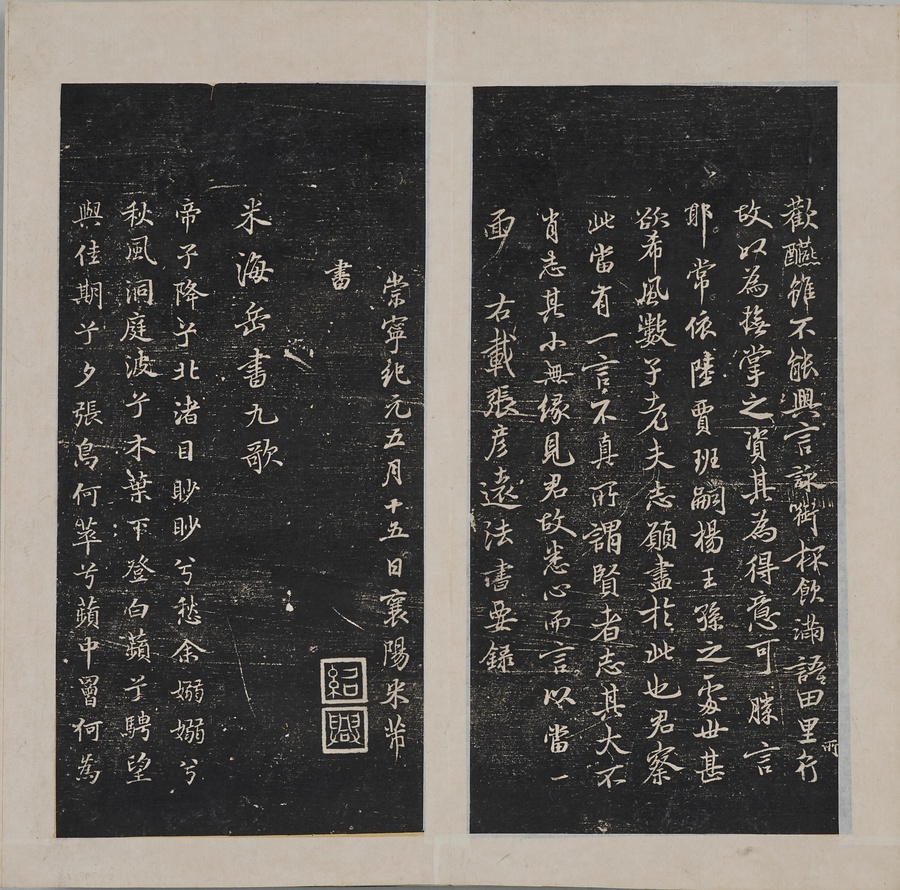 歡醼雖不能興言詠銜杯飲滿語田里所行
故以為撫掌之資其為得意可勝言
耶常依陸賈班嗣楊王孫之處世甚
欲希風數子老夫志願盡於此也君察
此當有一言不真所謂賢者志其大不
肖志其小無緣見君故悉心而言以當一
面 右載張彦遠法書要錄
崇寧紀元五月十五日襄陽米芾
書
紹興
米海岳書九歌
帝子降兮北渚目眇眇兮愁余嫋嫋兮
秋風洞庭波兮木葉下登白蘋兮騁望
與佳期兮夕張鳥何萃兮蘋中罾何為